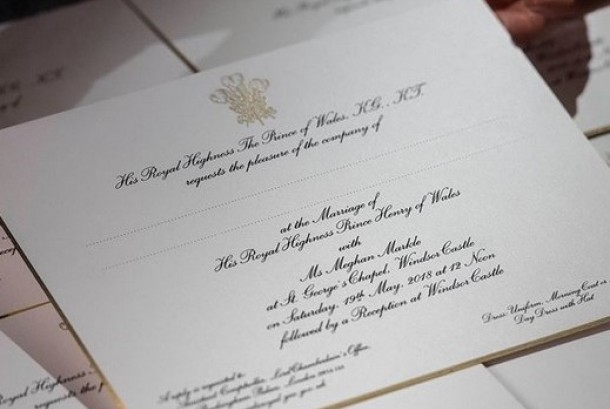 His Royal Highness The Prince of Wales, K.G., K.T.
requests the pleasure of the company of
at the Marriage of
His Royal Highness Prince Henry of Wales
with
Ms Meghan Markle
at St. George's Chapel, Windsor Castle
on Saturday, 19th May, 2018 at 12 Noon
followed by a Reception at Windsor Castle
Dress: Uniform, Morning Coat or
Day Dress with Hat
A reply is requested to:
Lord Chamberlain's Office,
Buckingham Palace, London
His Royal Highness
requests the p